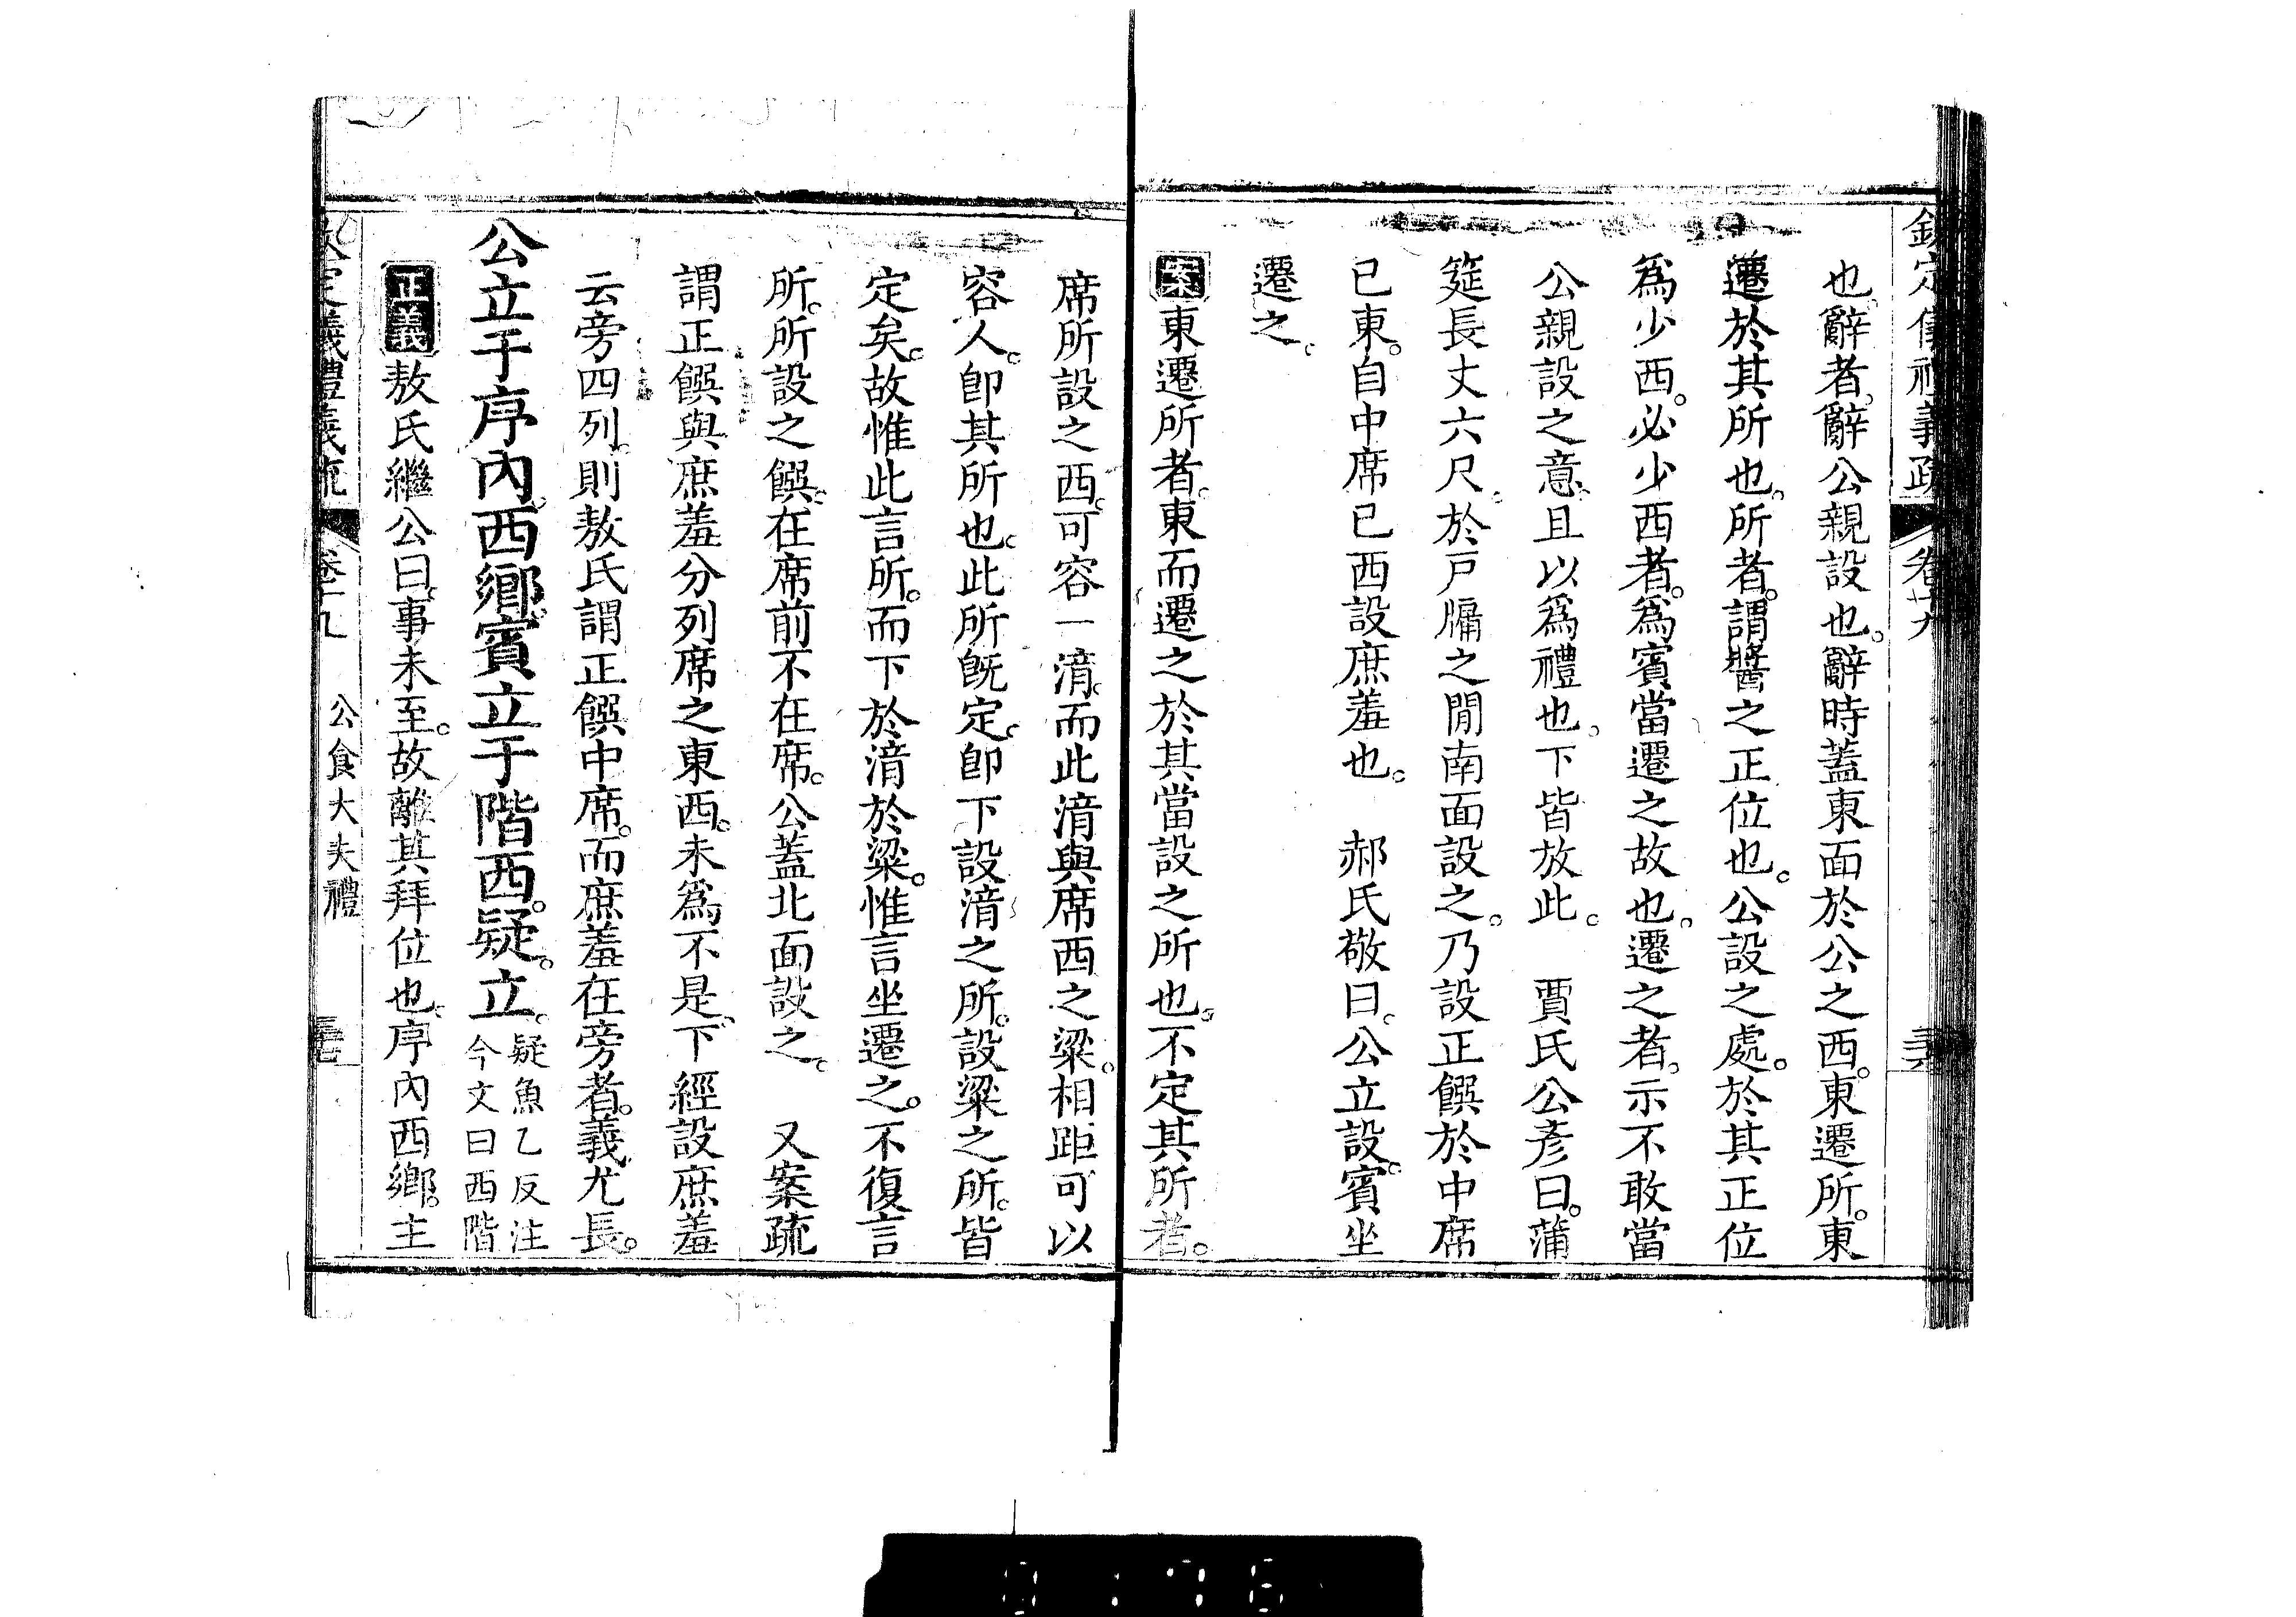 欽定儀禮義疏 卷十九
也。辭者。辭公親設也。辭時蓋東面於公之西。東遷所。東
遷於其所也。所者。謂醬之正位也。公設之處。於其正位
爲少西。必少西者。爲賓當遷之故也。遷之者。示不敢當
公親設之意。且以爲禮也。下皆放此。 賈氏公彥曰。蒲
筵長丈六尺。於戸牖之閒南面設之。乃設正饌於中席
已東。自中席已西設庶羞也。 郝氏敬曰。公立設。賓坐
遷之。
案東遷所者。東而遷之於其當設之所也。不定其所者。
席所設之西。可容一湇。而此湇與席西之粱。相距可以
容人。卽其所也。此所旣定。卽下設湇之所。設粱之所。皆
定矣。故惟此言所。而下於湇於粱。惟言坐遷之。不復言
所。所設之饌。在席前不在席。公蓋北面設之。 又案疏
謂正饌與庶羞分列席之東西。未爲不是。下經設庶羞
云旁四列。則敖氏謂正饌中席。而庶羞在旁者。義尤長。
公立于序內。西鄉。賓立于階西。疑。立。疑魚乙反注
今文曰西階
正義敖氏繼公曰。事未至。故離其拜位也。序內西鄉。主
定義禮義疏 公食大夫禮